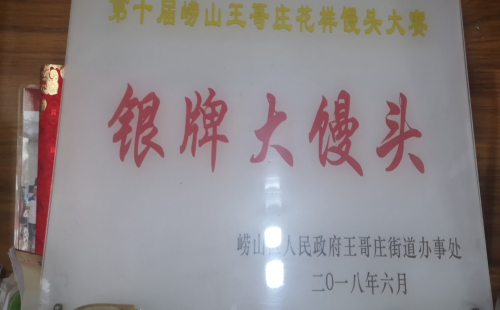 第十届崂山王哥庄花样馒头大赛
银牌大馒头
崂山 人民政府王哥庄街道办事处
二〇一八年六月